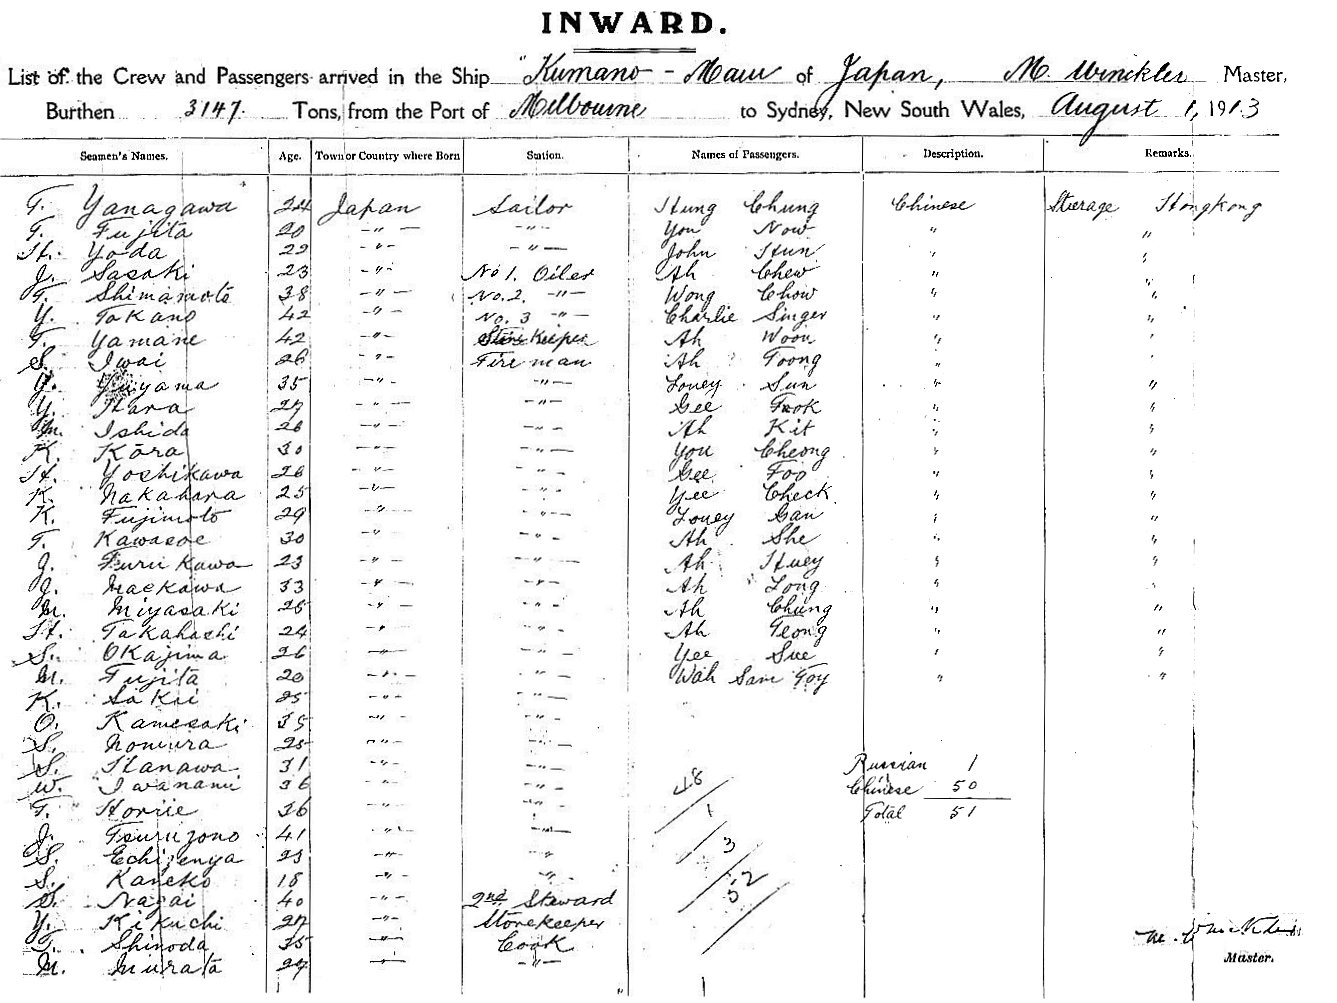 INWARD.
List of the Crew and Passengers arrived in the Ship "Kumano-Maru of Japan, M. Winckler Master,
Burthen 3147. Tons, from the Port of Melbourne to Sydney, New South Wales, August 1, 1913
Seamen's Names. Age. Town or Country where Born Station. Names of Passengers. Description. Remarks.
T. Yanagawa 24 Japan Sailor Hung Chung Chinese Steerage Hongkong
T. Fujita 20 -"- -"- You Now " "
H. Yoda 22 -"- -"- John Hun " "
J. Sasaki 23 -"- No 1. Oiler Ah Chew " "
T. Shimamoto 38 -"- No. 2. -"- Wong Chow " "
Y. Takano 42 -"- No. 3 -"- Charlie Singer " "
T. Yamane 42 -"- Store Keeper Ah Woon " "
S. Iwai 26 -"- Fireman Ah Toong " "
Yuyama 35 -"- -"- Louey Sun " "
Y. Hara 27 -"- -"- Gee Fook " "
M. Ishida 26 -"- -"- Ah Kit " "
K. Kōra 30 -"- -"- You Cheong " "
H. Yoshikawa 26 -"- -"- Gee Foo " "
K. Nakahara 25 -"- -"- Yee Check " "
K. Fujimoto 29 -"- -"- Louey Gan " "
T. Kawasoe 30 -"- -"- Ah She " "
J. Furukawa 23 -"- -"- Ah Huey " "
J. Maekawa 33 -"- -"- Ah Long " "
M. Miyasaki 25 -"- -"- Ah Chung " "
H. Takahashi 24 -"- -"- Ah Teong " "
S. Okajima 26 -"- -"- Yee Sue " "
M. Fujita 20 -"- -"- Wah Sam Toy " "
K. Sakai 25 -"- -"-
O. Kamesaki 35 -"- -"-
S. Nomura 25 -"- -"-
S. Hanawa 31 -"- -"- Russian 1
W. Iwanami 36 -"- -"- 48 Chinese 50
T. Horiie 36 -"- -"- 1 Total 51
J. Tsuruzono 41 -"- -"-
S. Echizenya 23 -"- -"- 3
S. Kaneko 18 -"- -"- 52
S. Nagai 40 -"- 2nd Steward
Y. Kikuchi 27 -"- Storekeeper
T. Shinoda 35 -"- Cook M. Winckler
M. Murata 27 -"- -"- Master.